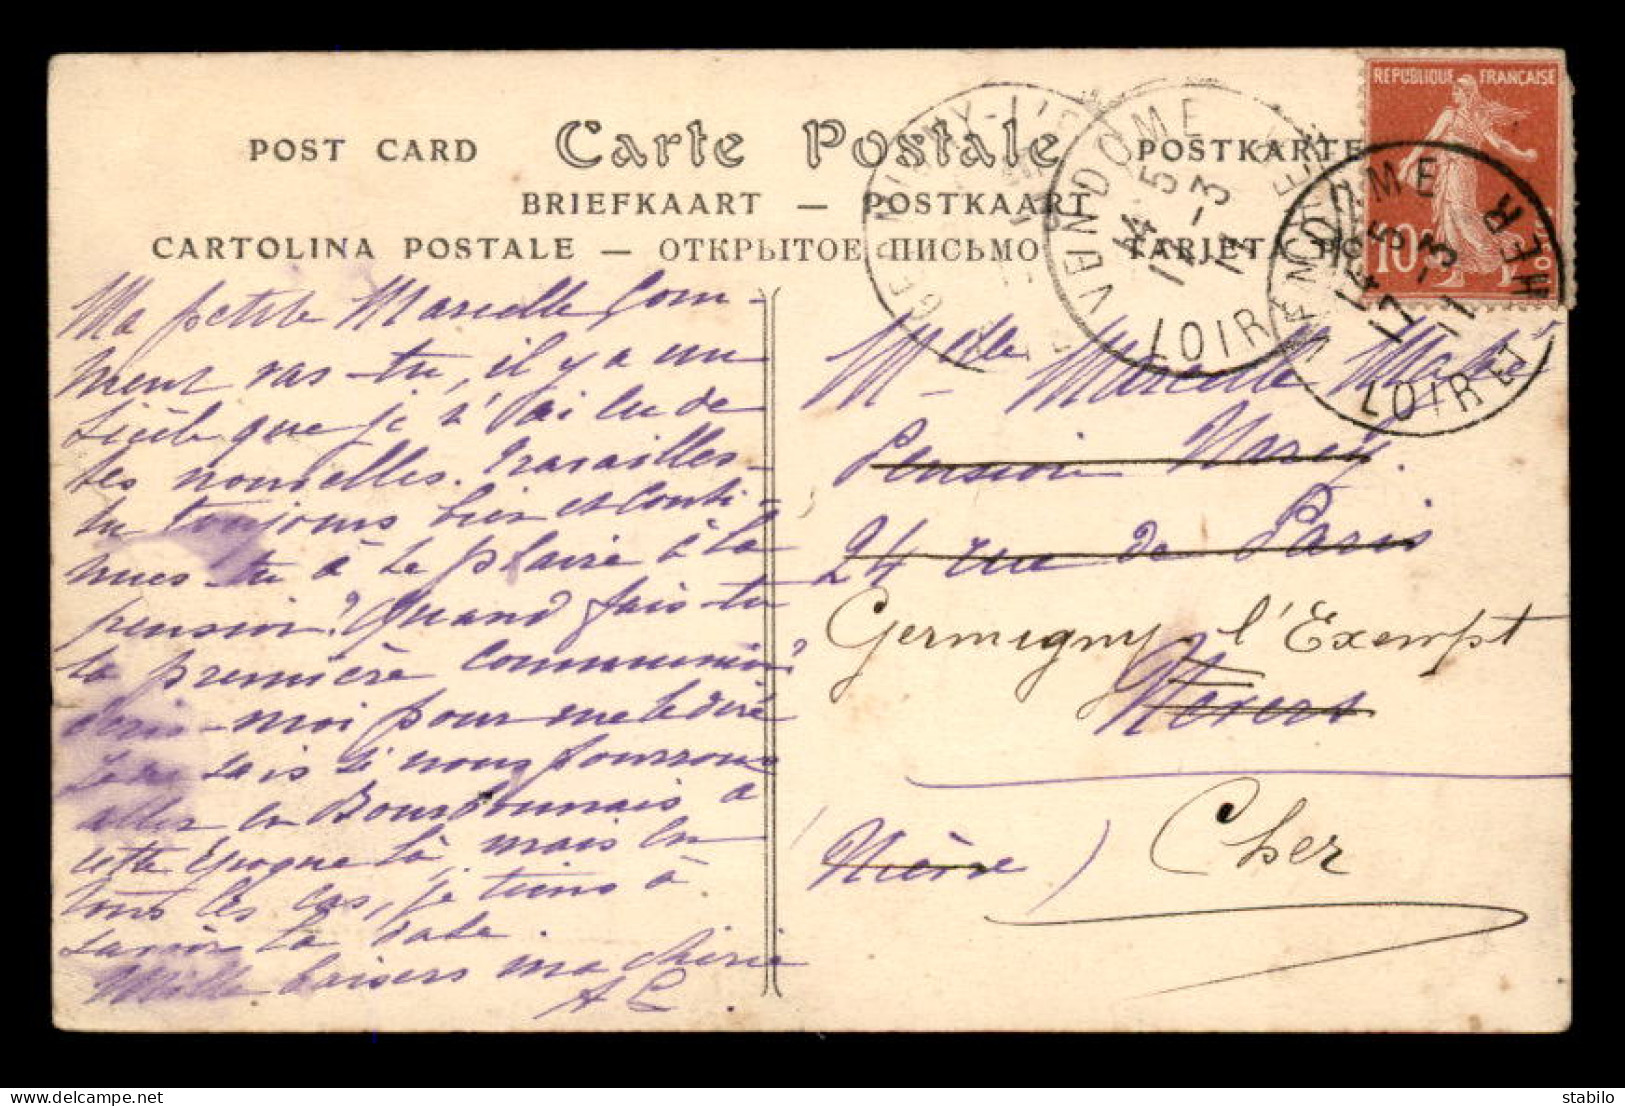 POST CARD Carte Postale POSTKARTE
BRIEFKAART — POSTKAART
CARTOLINA POSTALE — ОТКРЫТОЕ ПИСЬМО TARJETA
REPUBLIQUE FRANÇAISE
10
VENDOME
14 5
17 -3
11
LOIR ET CHER
VENDOME
14 5
17 -3
11
LOIR
GERMIGNY-L'E
Ma petite Marcelle Com-
ment vas-tu, il y a un
siècle que je n'ai lu de
tes nouvelles. Travailles-
tu toujours bien et conti-
nues-tu à te plaire à la
pension? Quand fais-tu
ta première communion?
écris-moi pour me le dire
sais si nous pourrons
aller en Bourbonnais à
cette époque là, mais en
tous les cas, je tiens à
savoir la date.
Mille baisers ma chérie
A L.
Mdlle Marcelle
Pension
24 rue de Paris
Germigny l'Exempt
Nevers
Cher
(Nièvre)
stabilo